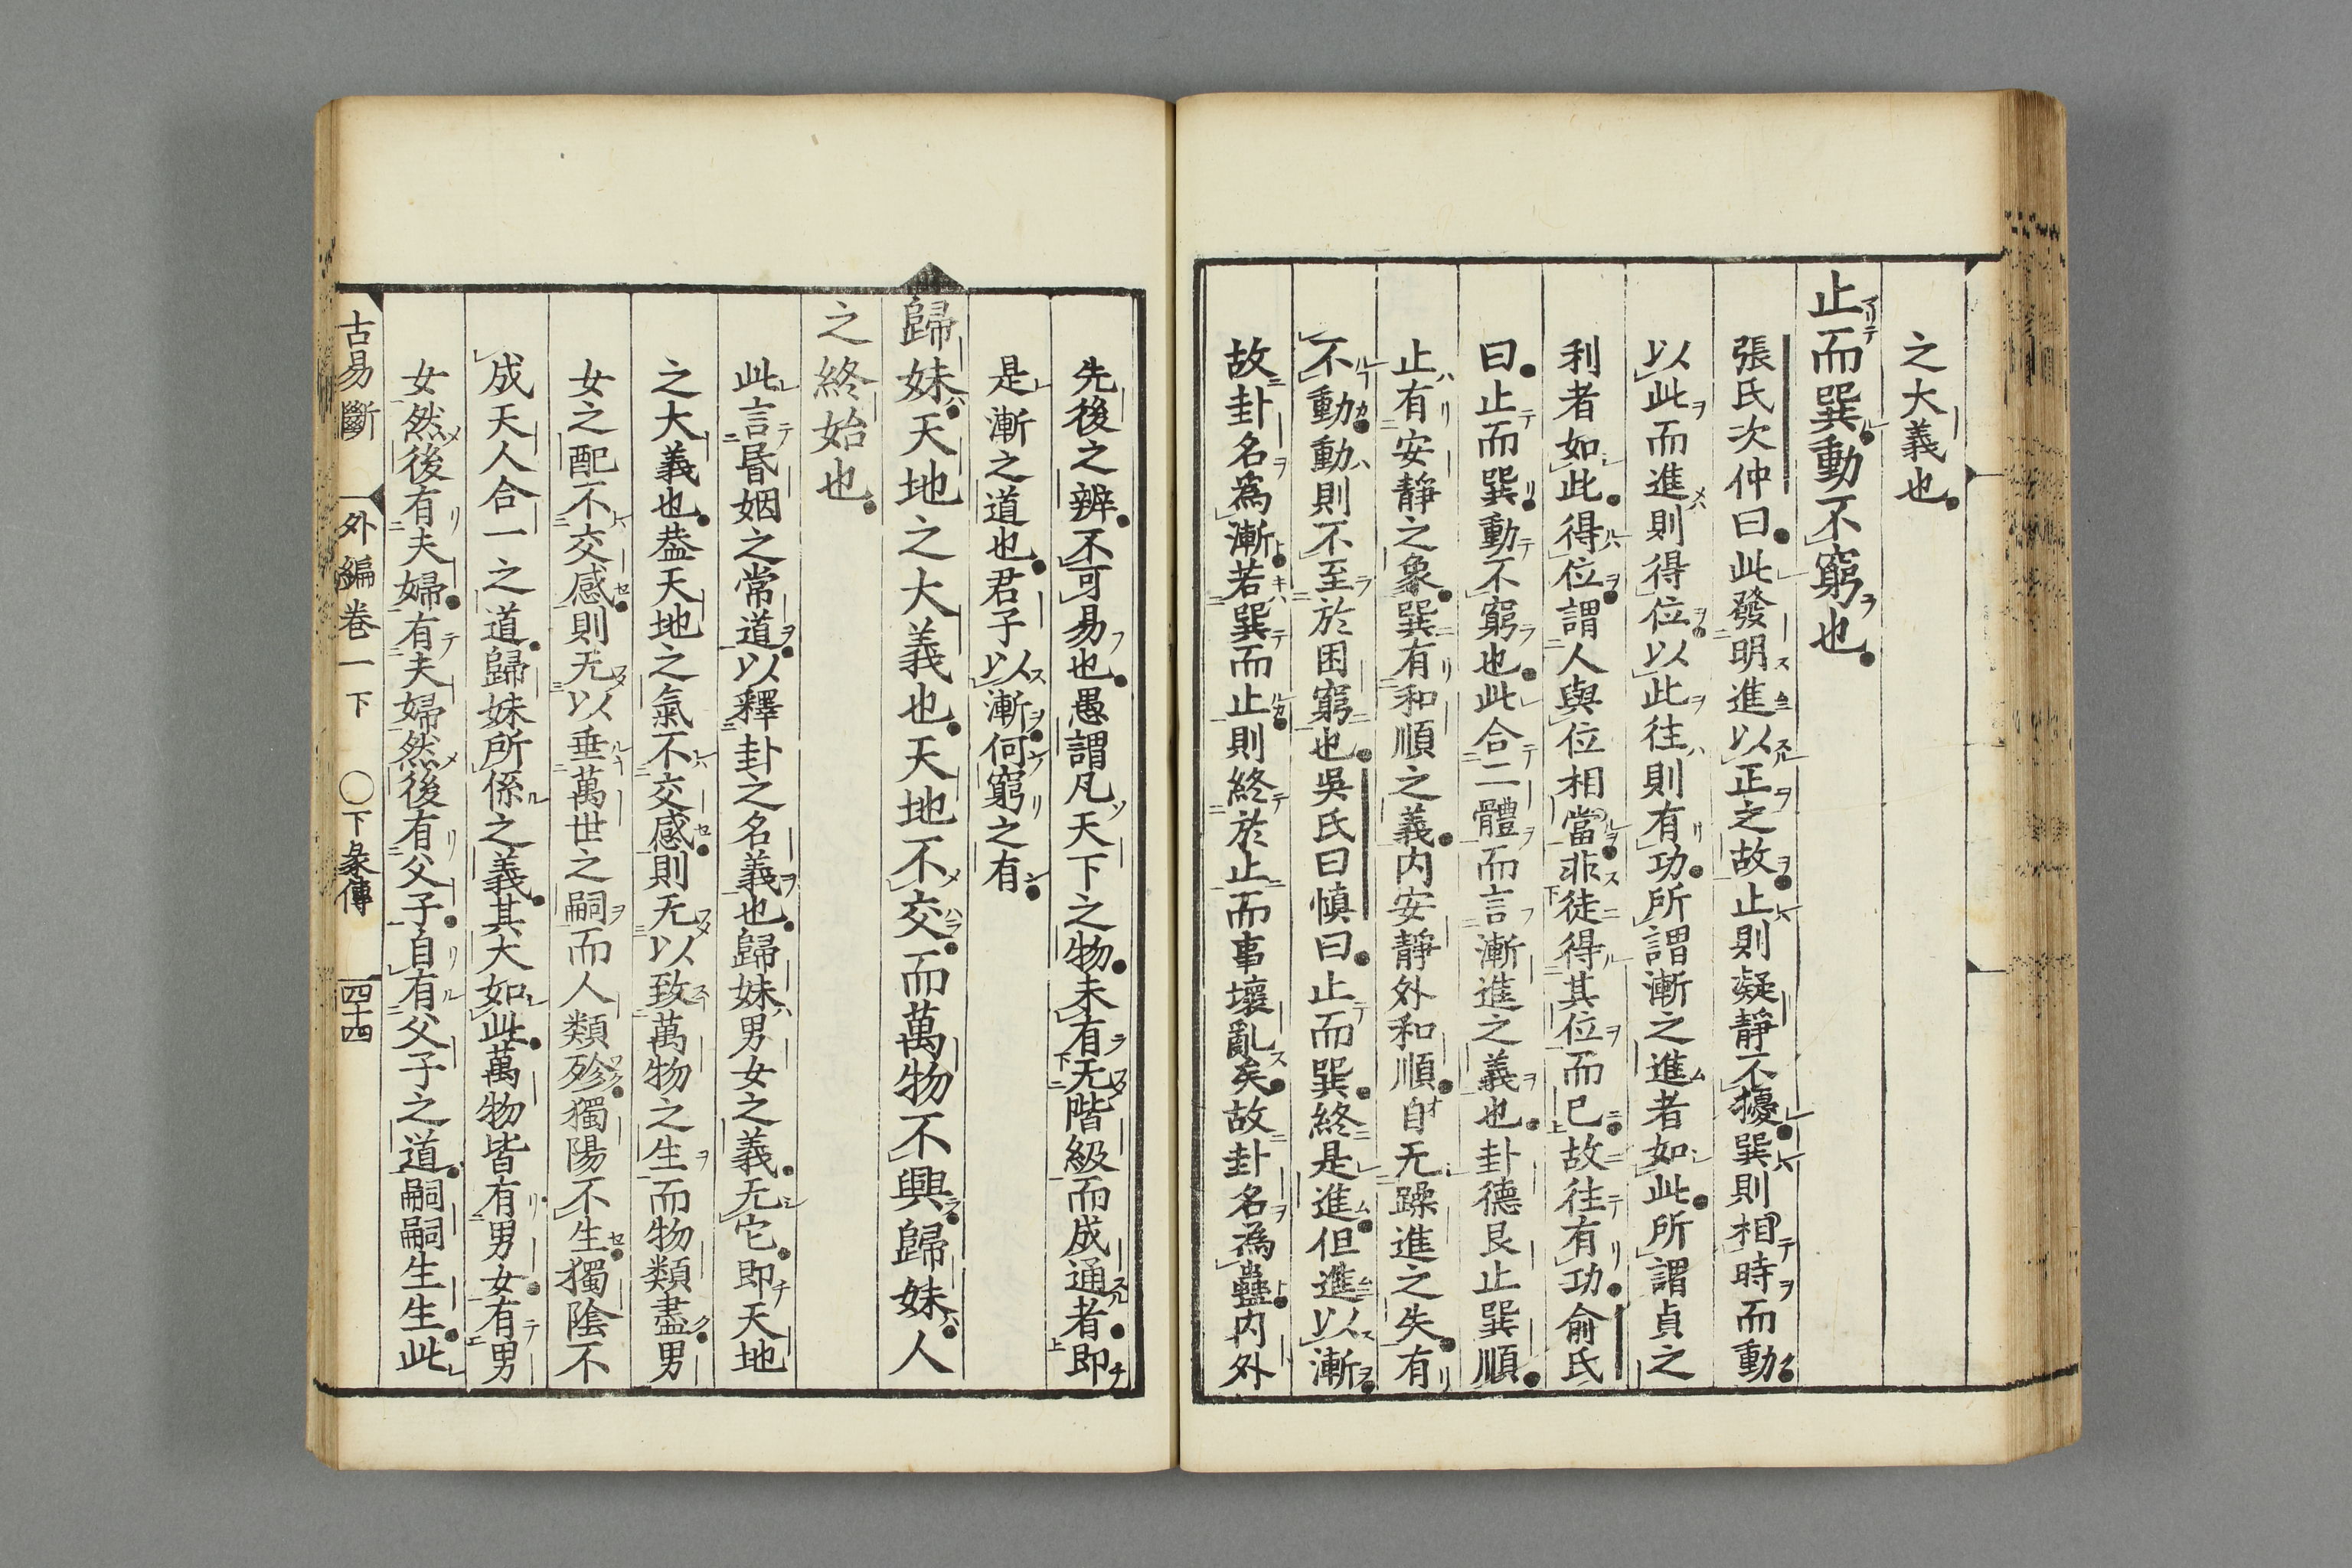 之大義也
止而巽動不窮也
張氏次仲曰此發明進以正之故止則凝靜不擾巽則相時而動
以此而進則得位以此往則有功所謂漸之進者如此所謂貞之
利者如此得位謂人與位相當非徒得其位而已故往有功俞氏
曰止而巽動不窮也此合二體而言漸進之義也卦德艮止巽順
止有安靜之象巽有和順之義内安靜外和順自无躁進之失有
不動動則不至於困窮也吳氏曰慎曰止而巽終是進但進以漸
故卦名爲漸若巽而止則終於止而事壞亂矣故卦名為蠱内外
先後之辨不可易也愚謂凡天下之物未有无階級而成通者即
是漸之道也君子以漸何窮之有
歸妹天地之大義也天地不交而萬物不興歸妹人
之終始也
此言昏姻之常道以釋卦之名義也歸妹男女之義无它即天地
之大義也葢天地之氣不交感則无以致萬物之生而物類盡男
女之配不交感則无以垂萬世之嗣而人類殄獨陽不生獨陰不
成天人合一之道歸妹所係之義其大如此萬物皆有男女有男
女然後有夫婦有夫婦然後有父子自有父子之道嗣嗣生生此
古易斷 外編卷一下 〇下彖傳 四十四